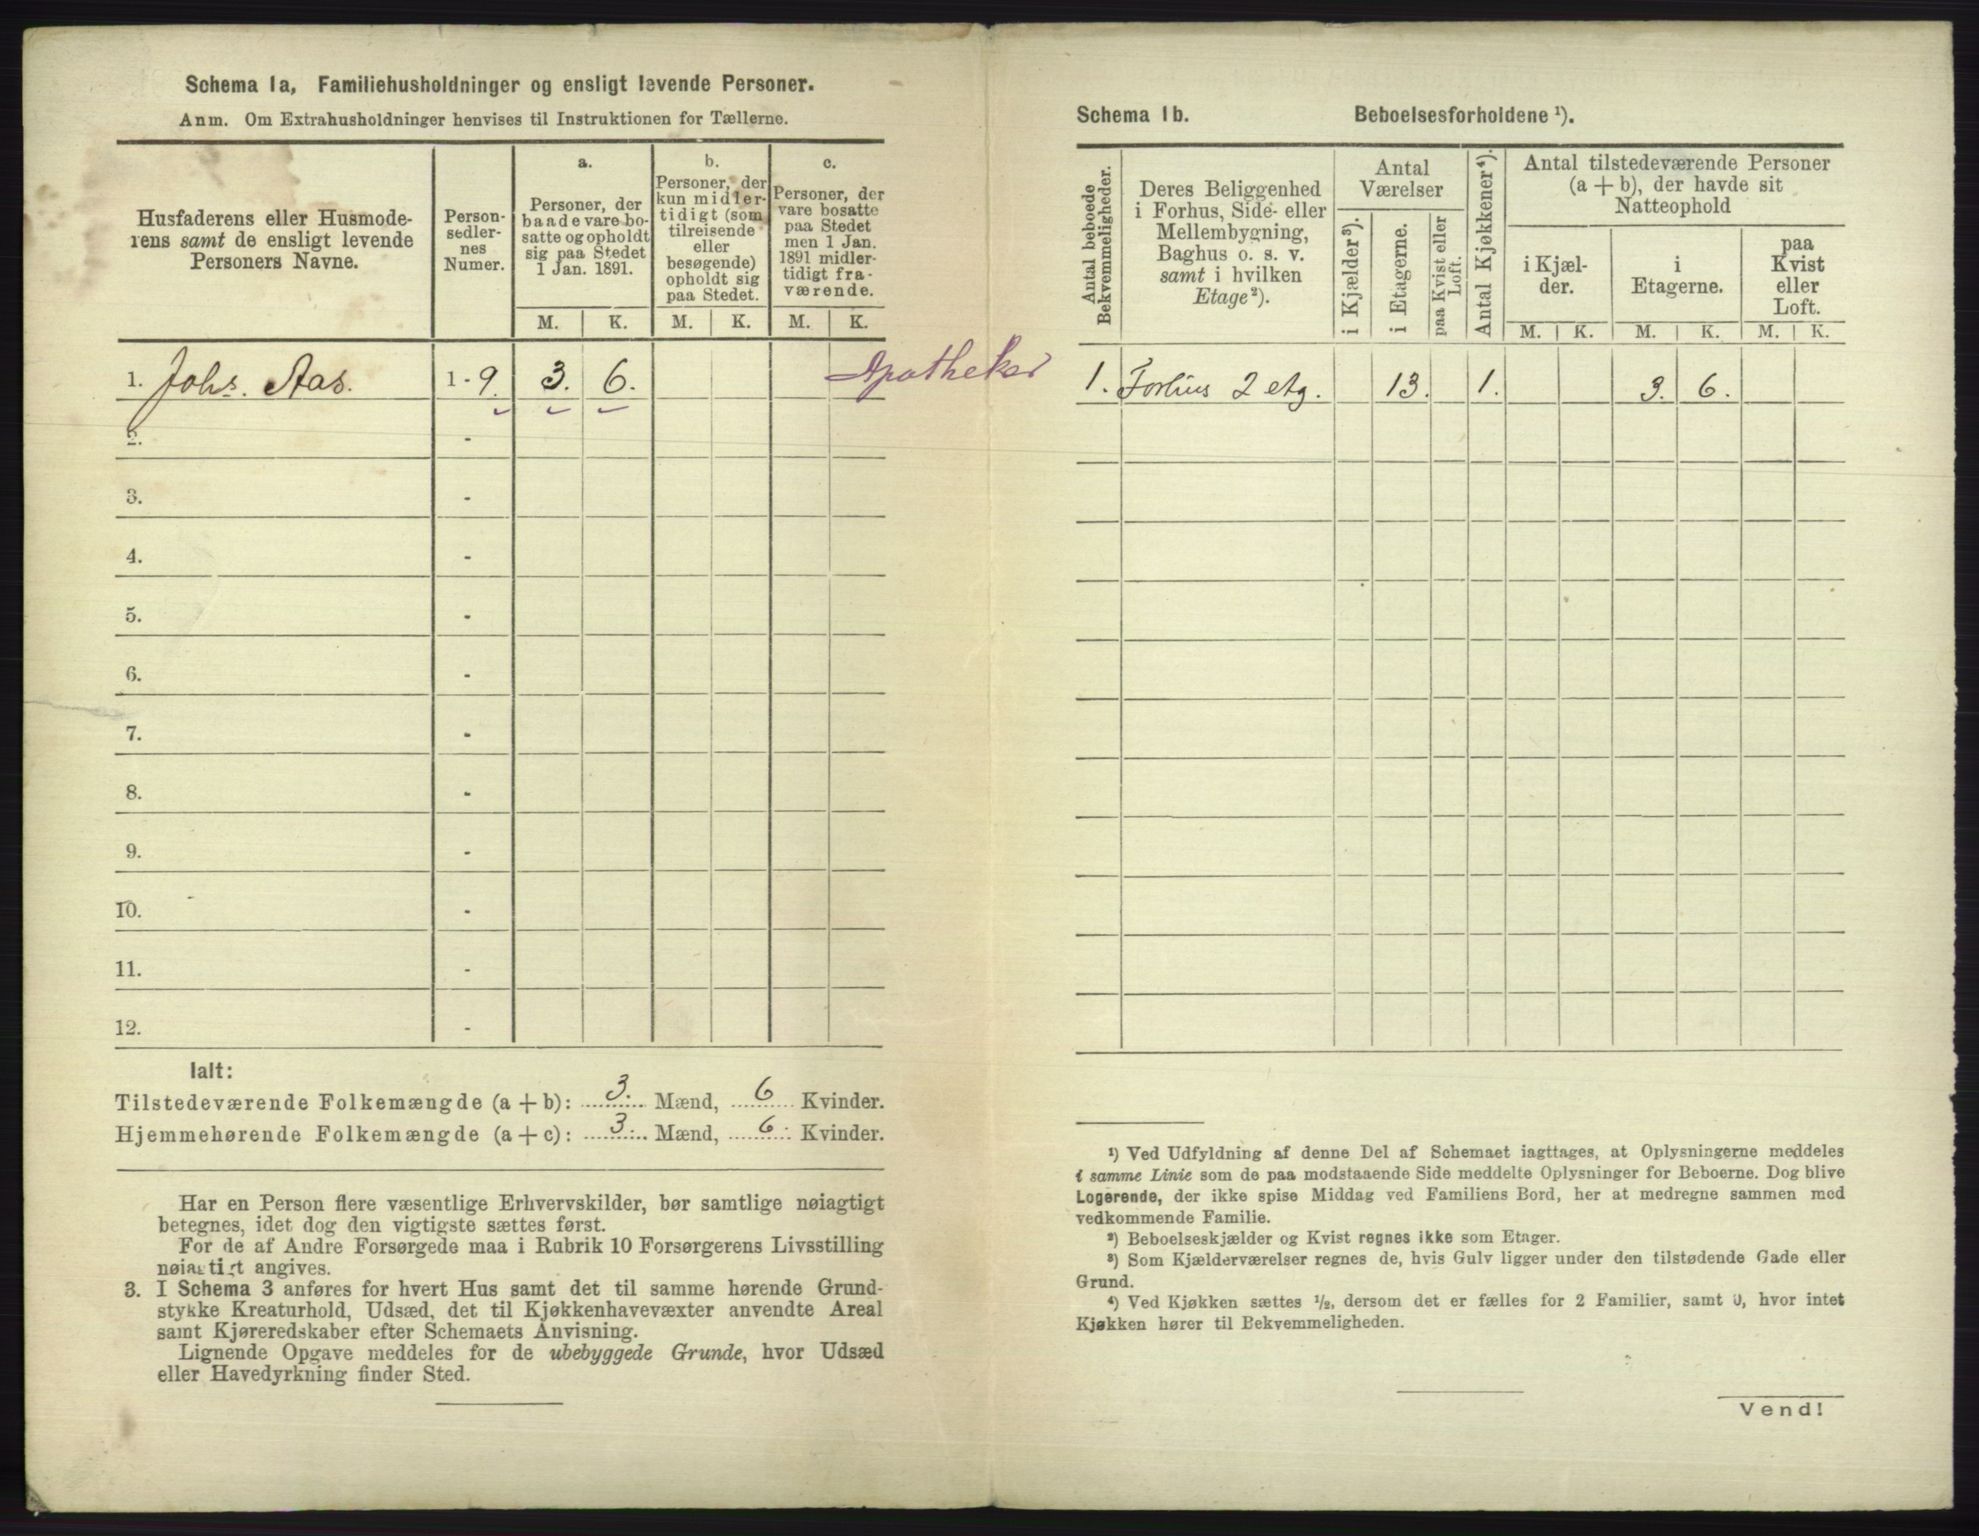 Schema 1a, Familiehusholdninger og ensligt levende Personer.
Anm. Om Extrahusholdninger henvises til Instruktionen for Tællerne.
Husfaderens eller Husmode-
rens samt de ensligt levende
Personers Navne.
Person-
sedler-
nes
Numer.
a.
Personer, der
baade vare bo-
satte og opholdt
sig paa Stedet
1 Jan. 1891.
b.
Personer, der
kun midler-
tidigt (som
tilreisende
eller
besøgende)
opholdt sig
paa Stedet.
c.
Personer, der
vare bosatte
paa Stedet
men 1 Jan.
1891 midler-
tidigt fra-
værende.
M. K. M. K. M. K.
1. Johs. Aas. 1 - 9. 3. 6. Apotheker
2. -
3. -
4. -
5. -
6. -
7. -
8. -
9. -
10. -
11. -
12. -
Ialt:
Tilstedeværende Folkemængde (a + b): 3. Mænd, 6 Kvinder.
Hjemmehørende Folkemængde (a + c): 3. Mænd, 6. Kvinder.
Har en Person flere væsentlige Erhvervskilder, bør samtlige nøiagtigt
betegnes, idet dog den vigtigste sættes først.
For de af Andre Forsørgede maa i Rubrik 10 Forsørgerens Livsstilling
nøiagtigt angives.
3. I Schema 3 anføres for hvert Hus samt det til samme hørende Grund-
stykke Kreaturhold, Udsæd, det til Kjøkkenhavevæxter anvendte Areal
samt Kjøreredskaber efter Schemaets Anvisning.
Lignende Opgave meddeles for de ubebyggede Grunde, hvor Udsæd
eller Havedyrkning finder Sted.
Schema 1b. Beboelsesforholdene ¹).
Antal beboede
Bekvemmeligheder.
Deres Beliggenhed
i Forhus, Side- eller
Mellembygning,
Baghus o. s. v.
samt i hvilken
Etage ²).
Antal
Værelser
i Kjælder ³).
i Etagerne.
paa Kvist eller
Loft.
Antal Kjøkkener ⁴).
Antal tilstedeværende Personer
(a + b), der havde sit
Natteophold
i Kjæl-
der.
i
Etagerne.
paa
Kvist
eller
Loft.
M. K. M. K. M. K.
1. Forhus 2 etg. 13. 1. 3. 6.
¹) Ved Udfyldning af denne Del af Schemaet iagttages, at Oplysningerne meddeles
i samme Linie som de paa modstaaende Side meddelte Oplysninger for Beboerne. Dog blive
Logerende, der ikke spise Middag ved Familiens Bord, her at medregne sammen med
vedkommende Familie.
²) Beboelseskjælder og Kvist regnes ikke som Etager.
³) Som Kjælderværelser regnes de, hvis Gulv ligger under den tilstødende Gade eller
Grund.
⁴) Ved Kjøkken sættes ½, dersom det er fælles for 2 Familier, samt 0, hvor intet
Kjøkken hører til Bekvemmeligheden.
Vend!